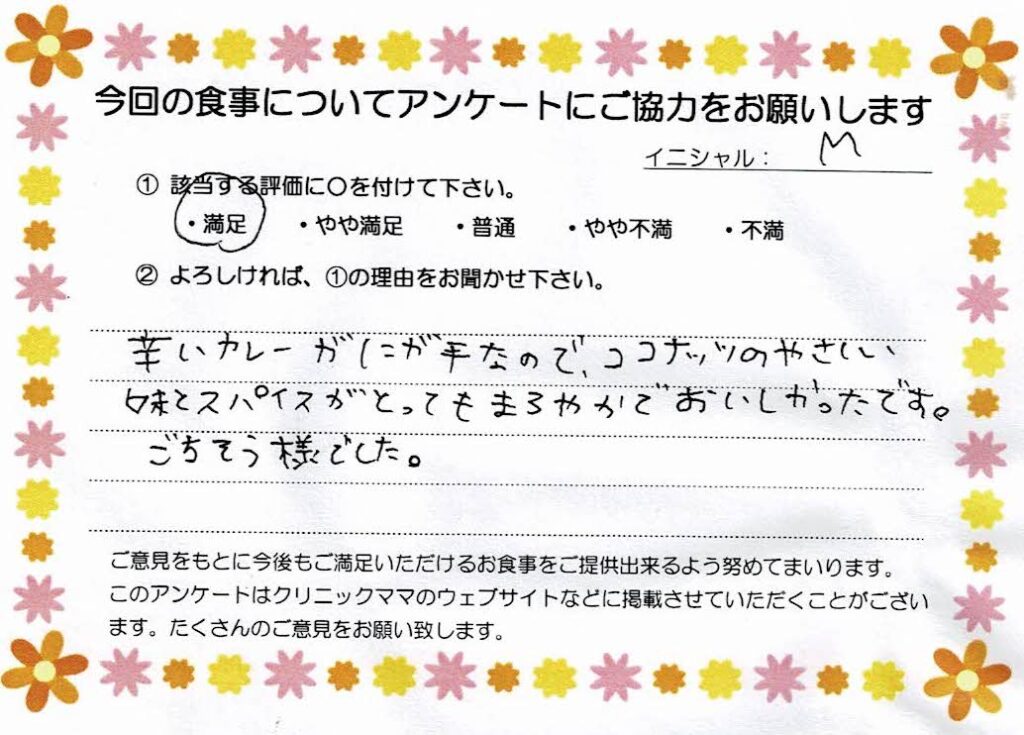 今回の食事についてアンケートにご協力をお願いします
イニシャル： M
① 該当する評価に〇を付けて下さい。
・満足 ・やや満足 ・普通 ・やや不満 ・不満
② よろしければ、①の理由をお聞かせ下さい。
辛いカレーがにが手なので、ココナッツのやさしい
味とスパイスがとってもまろやかでおいしかったです。
ごちそう様でした。
ご意見をもとに今後もご満足いただけるお食事をご提供出来るよう努めてまいります。
このアンケートはクリニックママのウェブサイトなどに掲載させていただくことがござい
ます。たくさんのご意見をお願い致します。